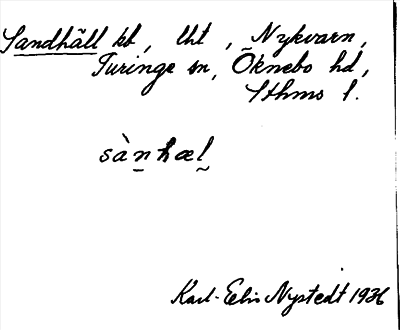 Sandhäll kb, lht, Nykvarn,
Turinge sn, Öknebo hd,
Sthms l.
sànhæl
Karl-Eelis Nystedt 1936